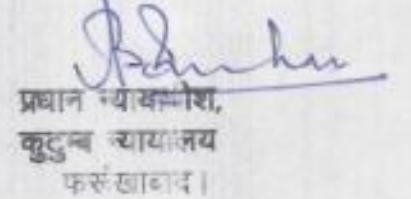 प्रधान न्यायाधीश,
कुटुम्ब न्यायालय
फर्रुखाबाद।